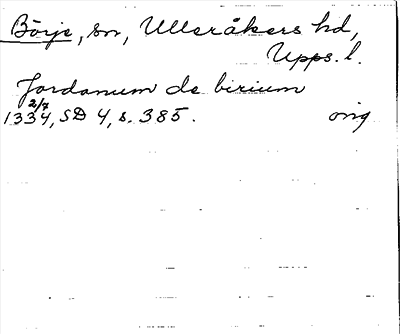 Börje, sn, Ulleråkers hd,
Upps. l.
Jordanum de birium
2/7
1334, SD 4, s. 385. orig